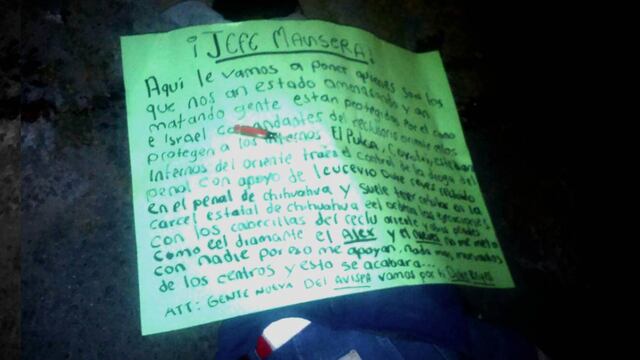 ¡JEFE MAVISERA!
Aquí le vamos a poner quienes son los
que nos an estado amenasando y an
matando gente estan protegidos por el
e Israel comandantes del reclusorio oriente ellos
protegen a los internos El Pulga,
Internos del oriente traen el control de la droga del
penal con apoyo de Leucevio Duke reyes
en el penal de chihuahua y suele tener celular en la
carcel estatal de chihuahua el ordena las
con los cabecillas del reclu oriente
como eel diamante el Alex y el no me meto
con nadie por eso me apoyan, nada
de los centros y esto se acabara...
ATT: GENTE NUEVA DEL AVISPA vamos por ti